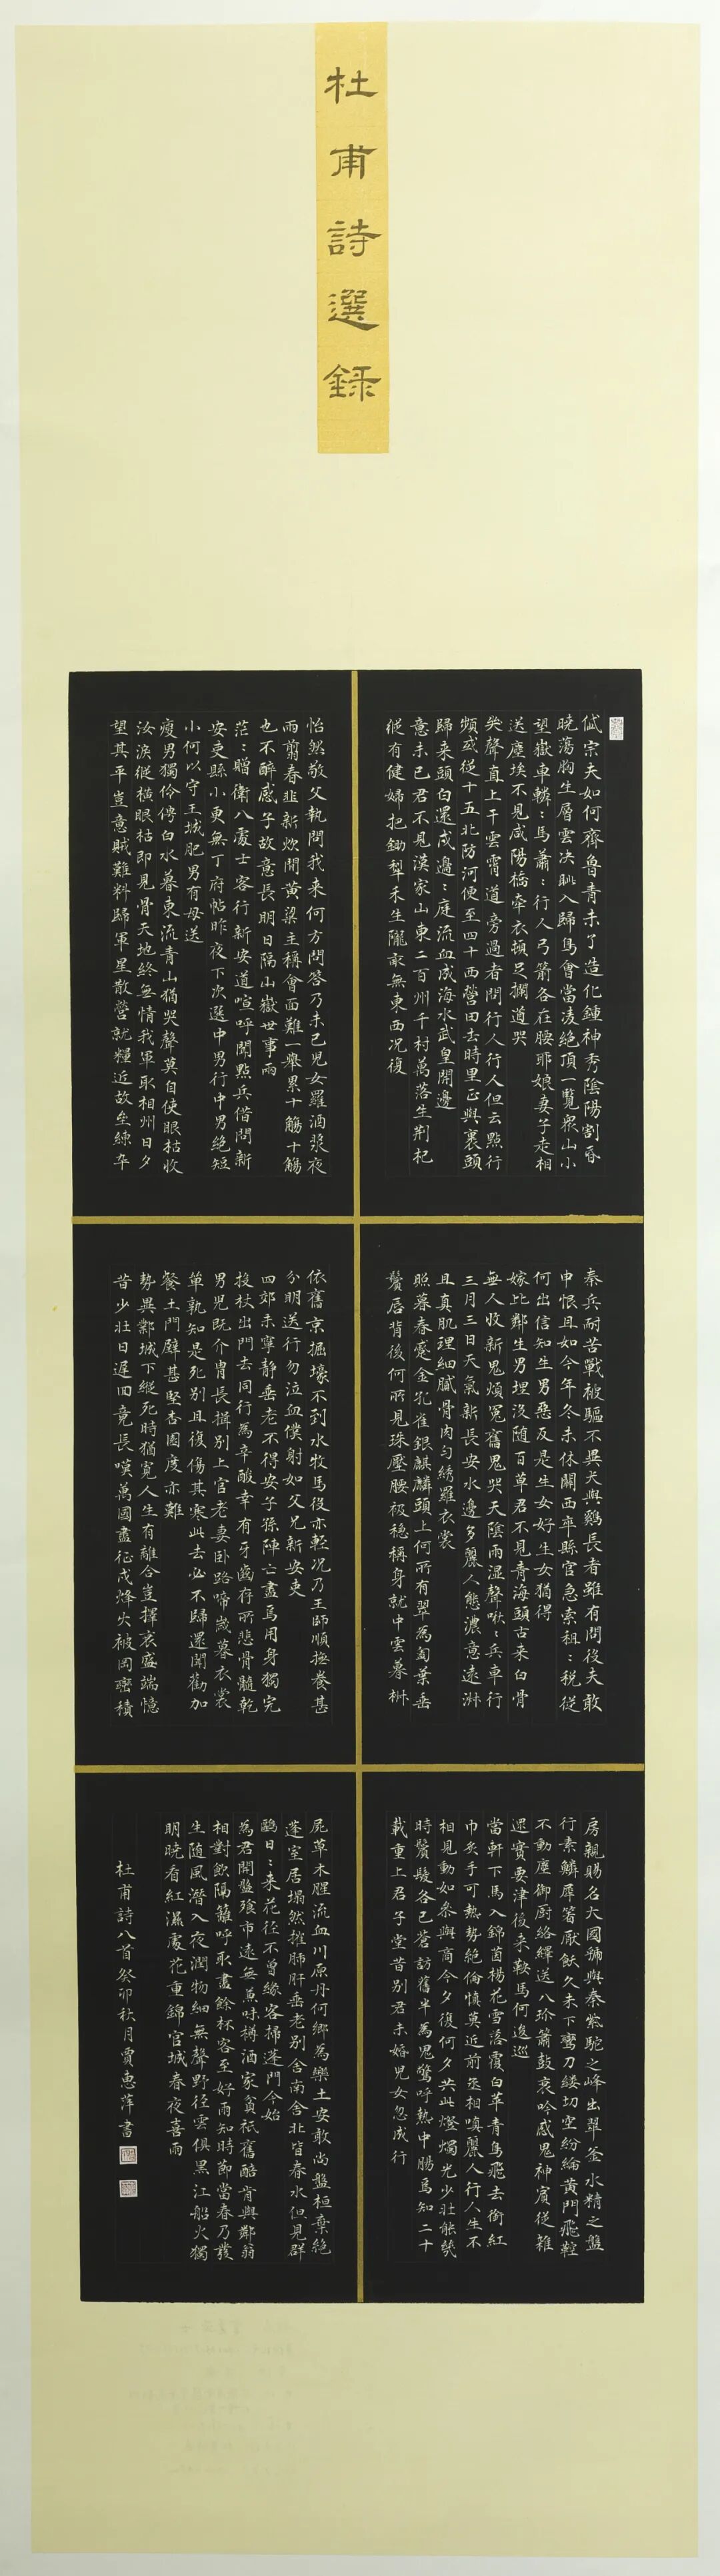 杜甫詩選録
岱宗夫如何齊魯青未了造化鍾神秀陰陽割昏
曉蕩胸生層雲决眥入歸鳥會當凌絶頂一覽衆山小
望嶽車轔：馬蕭：行人弓箭各在腰耶娘妻子走相
送塵埃不見咸陽橋牽衣頓足攔道哭
哭聲直上干雲霄道旁過者問行人行人但云點行
頻或從十五北防河便至四十西營田去時里正與裹頭
歸来頭白還戍邊：庭流血成海水武皇開邊
意未已君不見漢家山東二百州千村萬落生荆杞
縱有健婦把鋤犁禾生隴畝無東西况復
怡然敬父執問我来何方問答乃未已兒女羅酒漿夜
雨翦春韭新炊間黄粱主稱會面難一舉累十觴十觴
也不醉感子故意長明日隔山嶽世事兩
茫：贈衛八處士客行新安道喧呼聞點兵借問新
安吏縣小更無丁府帖昨夜下次選中男行中男絶短
小何以守王城肥男有母送
瘦男獨伶俜白水暮東流青山猶哭聲莫自使眼枯收
汝淚縱横眼枯即見骨天地終無情我軍取相州日夕
望其平豈意賊難料歸軍星散營就糧近故壘練卒
秦兵耐苦戰被驅不異犬與鷄長者雖有問役夫敢
申恨且如今年冬未休關西卒縣官急索租：税從
何出信知生男惡反是生女好生女猶得
嫁比鄰生男埋没随百草君不見青海頭古来白骨
無人收新鬼煩冤舊鬼哭天陰雨濕聲啾：兵車行
三月三日天氣新長安水邊多麗人態濃意遠淑
且真肌理細膩骨肉匀綉羅衣裳
照暮春蹙金孔雀銀麒麟頭上何所有翠為㔩葉垂
鬢唇背後何所見珠壓腰衱穩稱身就中雲幕椒
依舊京掘壕不到水牧馬役亦輕况乃王師順撫養甚
分明送行勿泣血僕射如父兄新安吏
四郊未寧静垂老不得安子孫陣亡盡焉用身獨完
投杖出門去同行為辛酸幸有牙齒存所悲骨髓乾
男兒既介胄長揖别上官老妻卧路啼歲暮衣裳
單孰知是死别且復傷其寒此去必不歸還聞勸加
餐土門壁甚堅杏園度亦難
勢異鄴城下縱死時猶寬人生有離合豈擇衰盛端憶
昔少壯日遲回竟長嘆萬國盡征戍烽火被岡巒積
房親賜名大國虢與秦紫駝之峰出翠釜水精之盤
行素鱗犀箸厭飫久未下鸞刀縷切空紛綸黄門飛鞚
不動塵御厨絡繹送八珍簫鼓哀吟感鬼神賓從雜
遝實要津後来鞍馬何逡巡
當軒下馬入錦茵楊花雪落覆白蘋青鳥飛去銜紅
巾炙手可熱勢絶倫慎莫近前丞相嗔麗人行人生不
相見動如參與商今夕復何夕共此燈燭光少壯能幾
時鬢髮各已蒼訪舊半為鬼驚呼熱中腸焉知二十
載重上君子堂昔别君未婚兒女忽成行
屍草木腥流血川原丹何鄉為樂土安敢尚盤桓棄絶
蓬室居塌然摧肺肝垂老别舍南舍北皆春水但見群
鷗日：来花徑不曾緣客掃蓬門今始
為君開盤飧市遠無兼味樽酒家貧衹舊醅肯與鄰翁
相對飲隔籬呼取盡餘杯客至好雨知時節當春乃發
生随風潛入夜潤物細無聲野徑雲俱黑江船火獨
明曉看紅濕處花重錦官城春夜喜雨
杜甫詩八首癸卯秋月賈惠萍書